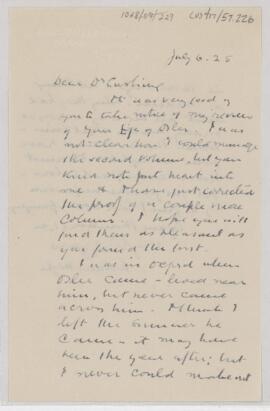 1068/04/227 CUS/17/57.226
July 6. 25
Dear Dr Cushing
It was very good of
you to take notice of my review
of your Life of Osler. I was
not clear how I could manage
the second volume, but your
kind note put heart into
me & I have just corrected
the proof of a couple more
columns. I hope you will
find them as pleasant as
you found the first.
I was in Oxford when
Osler came – lived near
him, but never came
across him. I think I
left the summer he
came – it may have
been the year after; but
I never could make out